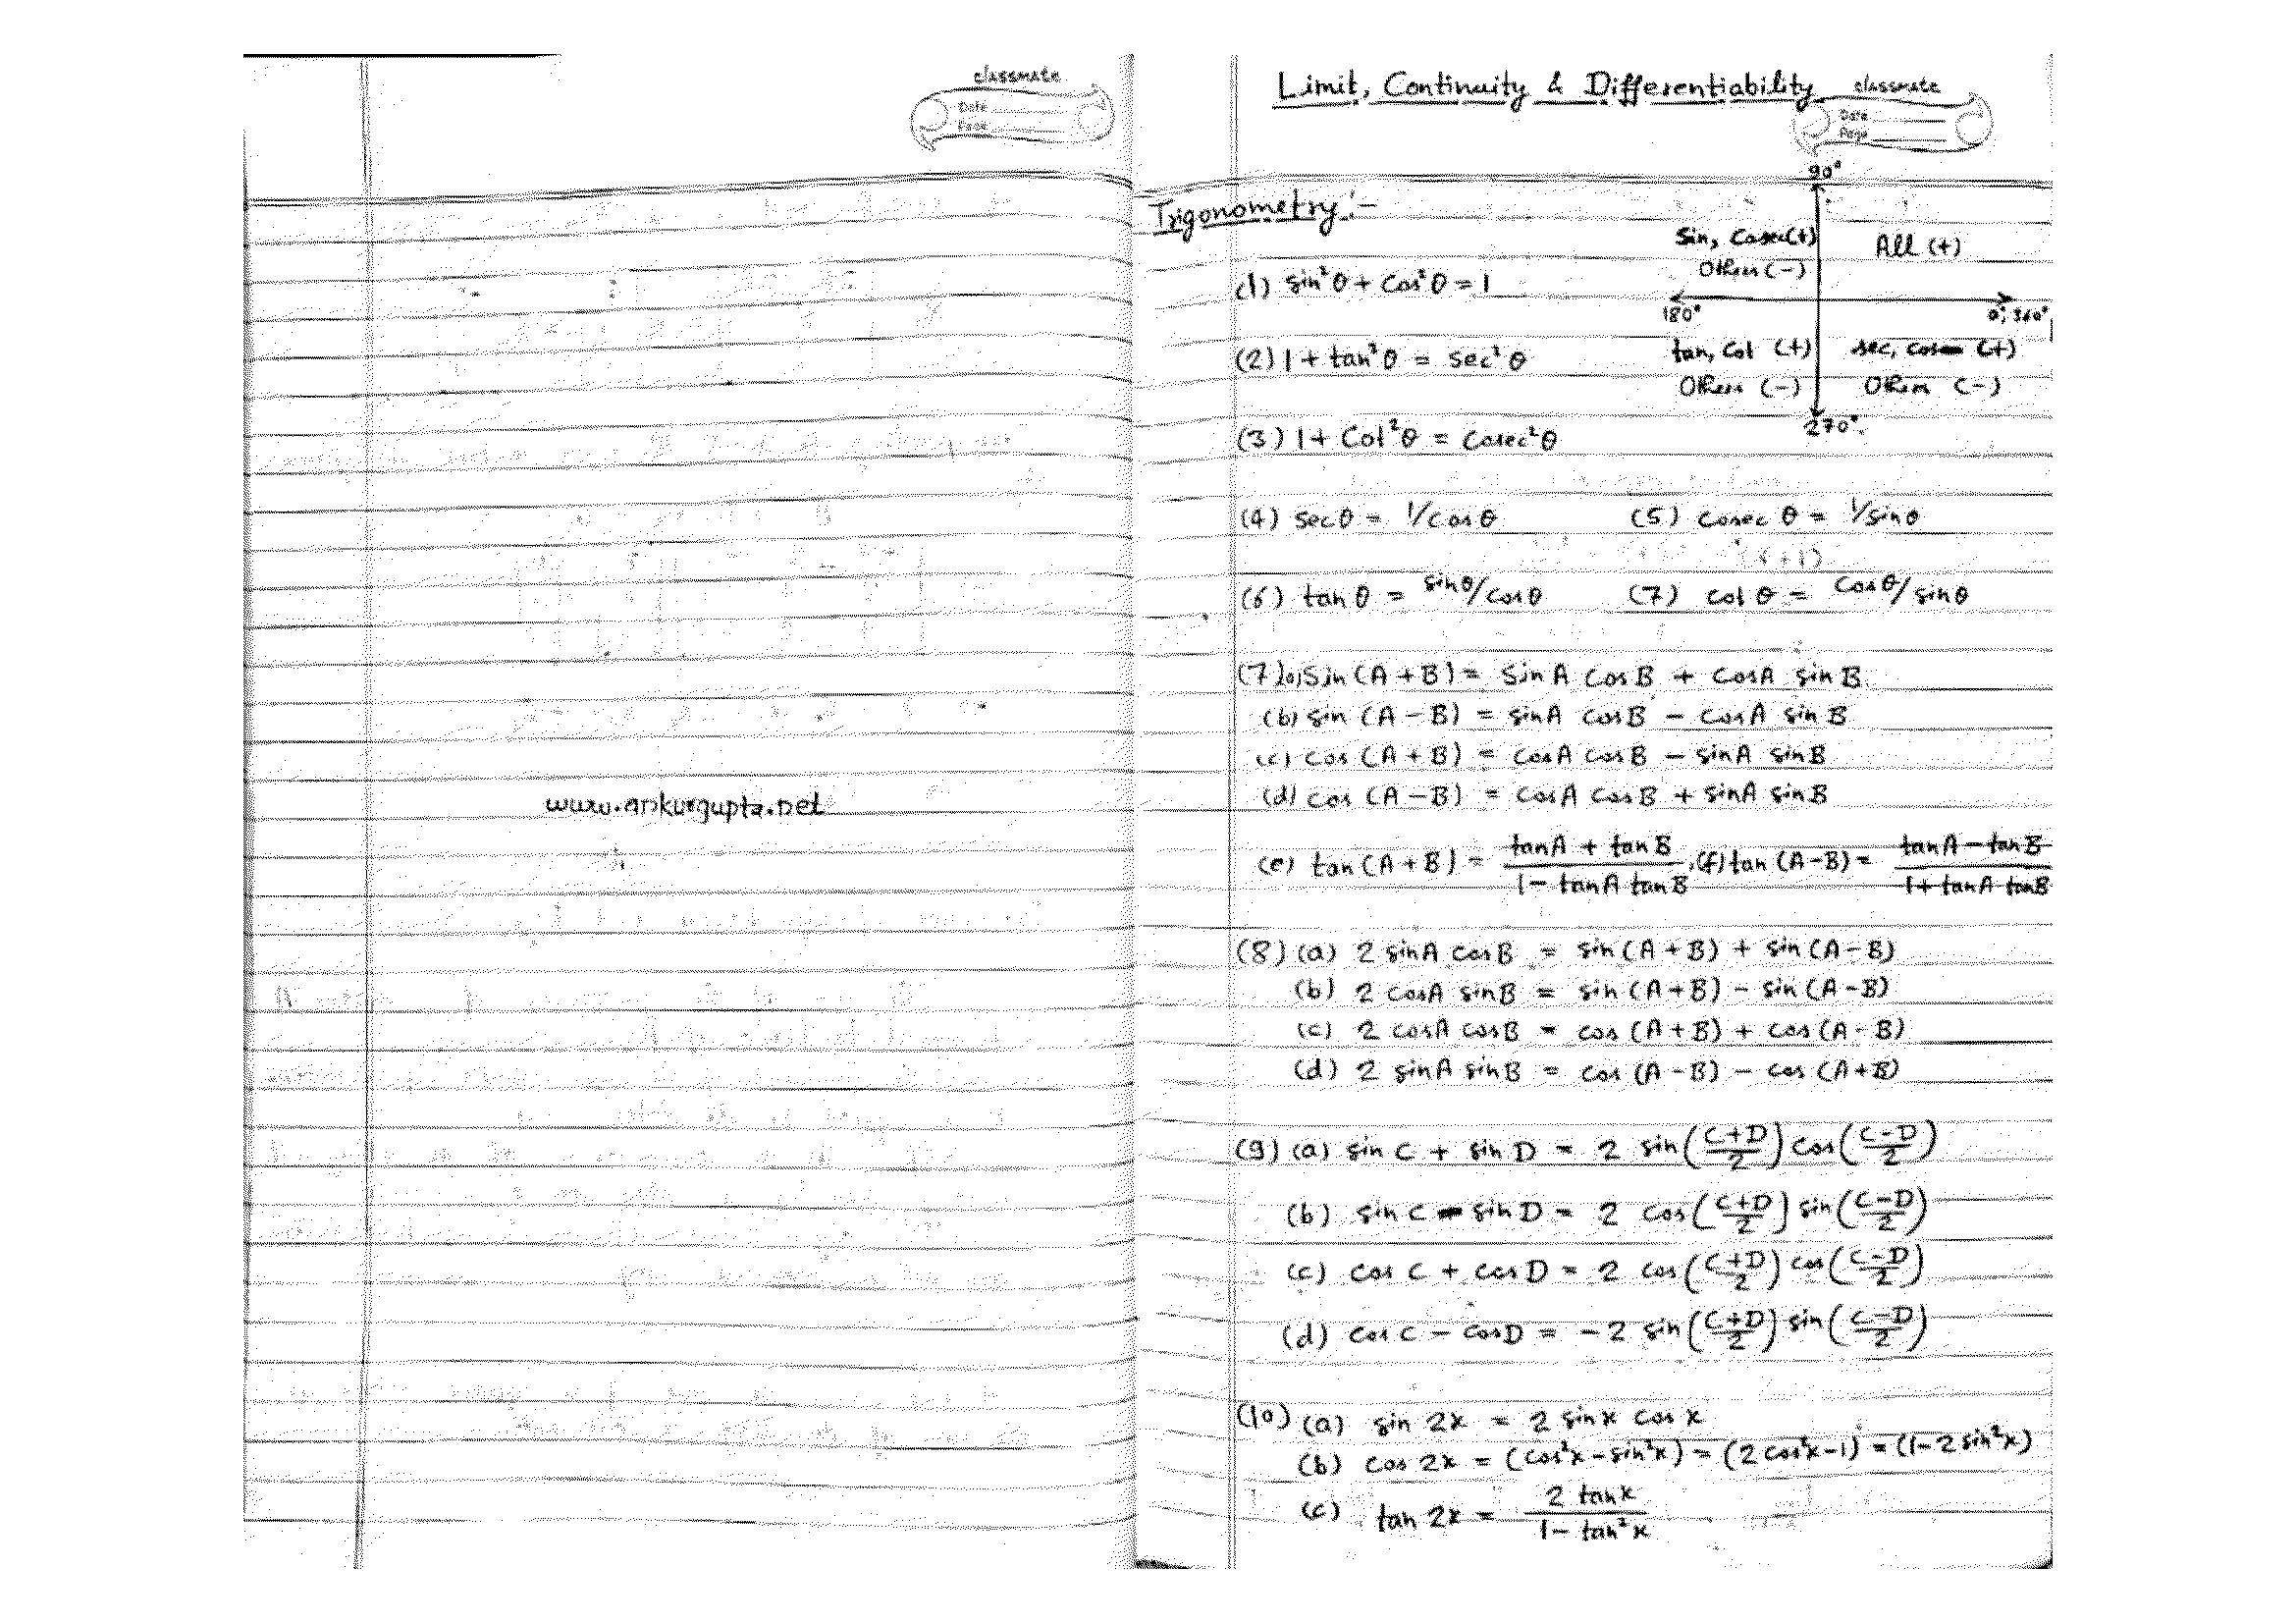 classmate
Date
Page
www.ankurgupta.net
Limit, Continuity & Differentiability
classmate
Date
Page
Trigonometry :-
90°
Sin, Cosec(+)
Others (-)
All (+)
180°
0°, 360°
tan, Cot (+)
Others (-)
sec, cos (+)
Others (-)
270°
(1) sin²θ + cos²θ = 1
(2) 1 + tan²θ = sec²θ
(3) 1 + Cot²θ = Cosec²θ
(4) secθ = 1/cosθ (5) Cosec θ = 1/sinθ
(6) tanθ = sinθ/cosθ (7) cot θ = cosθ/sinθ
(7) (a) Sin (A + B) = Sin A Cos B + CosA sin B
(b) sin (A - B) = sinA cosB - cosA sin B
(c) cos (A + B) = cosA cosB - sinA sinB
(d) cos (A - B) = cosA cosB + sinA sinB
(e) tan (A + B) = (tanA + tanB)/(1 - tanA tanB), (f) tan (A-B) = (tanA - tanB)/(1 + tanA tanB)
(8) (a) 2 sinA cosB = sin(A + B) + sin(A - B)
(b) 2 cosA sinB = sin (A+B) - sin (A-B)
(c) 2 cosA cosB = cos (A+B) + cos (A-B)
(d) 2 sinA sinB = cos (A-B) - cos (A+B)
(9) (a) sin C + sin D = 2 sin((C+D)/2) cos((C-D)/2)
(b) sin C - sin D = 2 cos((C+D)/2) sin((C-D)/2)
(c) cos C + cos D = 2 cos((C+D)/2) cos((C-D)/2)
(d) cos C - cosD = -2 sin((C+D)/2) sin((C-D)/2)
(10) (a) sin 2x = 2 sinx cos x
(b) cos 2x = (cos²x - sin²x) = (2 cos²x - 1) = (1 - 2 sin²x)
(c) tan 2x = 2 tanx/(1 - tan²x)